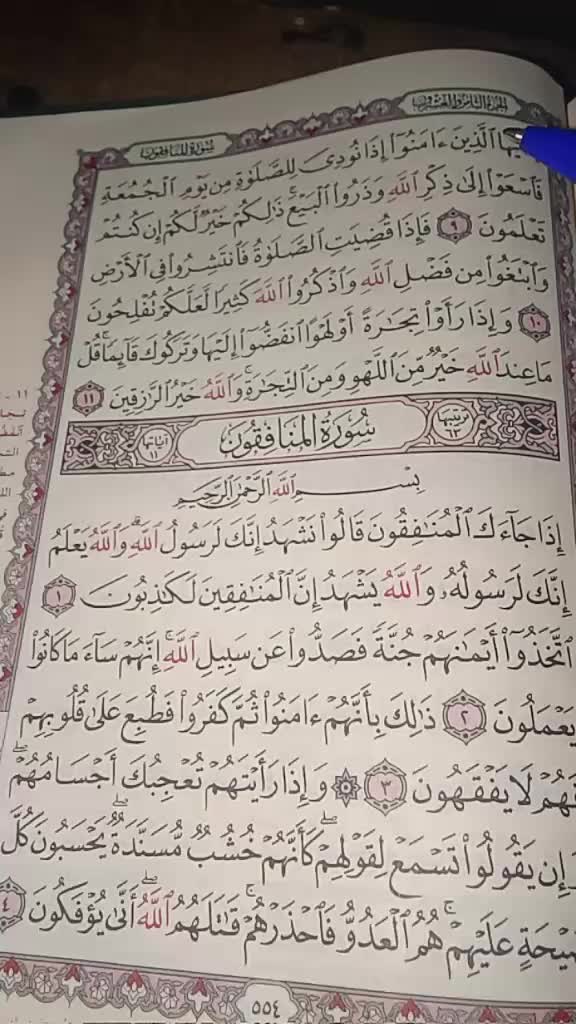 الجزء الثامن والعشرون
سورة المنافقون
الَّذِينَ ءَامَنُوٓا۟ إِذَا نُودِىَ لِلصَّلَوٰةِ مِن يَوْمِ ٱلْجُمُعَةِ
فَٱسْعَوْا۟ إِلَىٰ ذِكْرِ ٱللَّهِ وَذَرُوا۟ ٱلْبَيْعَ ۚ ذَٰلِكُمْ خَيْرٌ لَّكُمْ إِن كُنتُمْ
تَعْلَمُونَ ٩ فَإِذَا قُضِيَتِ ٱلصَّلَوٰةُ فَٱنتَشِرُوا۟ فِى ٱلْأَرْضِ
وَٱبْتَغُوا۟ مِن فَضْلِ ٱللَّهِ وَٱذْكُرُوا۟ ٱللَّهَ كَثِيرًا لَّعَلَّكُمْ تُفْلِحُونَ
١٠ وَإِذَا رَأَوْا۟ تِجَٰرَةً أَوْ لَهْوًا ٱنفَضُّوٓا۟ إِلَيْهَا وَتَرَكُوكَ قَآئِمًا ۚ قُلْ
مَا عِندَ ٱللَّهِ خَيْرٌ مِّنَ ٱللَّهْوِ وَمِنَ ٱلتِّجَٰرَةِ ۚ وَٱللَّهُ خَيْرُ ٱلرَّٰزِقِينَ ١١
ترتيبها ٦٣
سورة المنافقون
آياتها ١١
بِسْمِ ٱللَّهِ ٱلرَّحْمَٰنِ ٱلرَّحِيمِ
إِذَا جَآءَكَ ٱلْمُنَٰفِقُونَ قَالُوا۟ نَشْهَدُ إِنَّكَ لَرَسُولُ ٱللَّهِ ۗ وَٱللَّهُ يَعْلَمُ
إِنَّكَ لَرَسُولُهُۥ وَٱللَّهُ يَشْهَدُ إِنَّ ٱلْمُنَٰفِقِينَ لَكَٰذِبُونَ ١
ٱتَّخَذُوٓا۟ أَيْمَٰنَهُمْ جُنَّةً فَصَدُّوا۟ عَن سَبِيلِ ٱللَّهِ ۚ إِنَّهُمْ سَآءَ مَا كَانُوا۟
يَعْمَلُونَ ٢ ذَٰلِكَ بِأَنَّهُمْ ءَامَنُوا۟ ثُمَّ كَفَرُوا۟ فَطُبِعَ عَلَىٰ قُلُوبِهِمْ
فَهُمْ لَا يَفْقَهُونَ ٣ ۞ وَإِذَا رَأَيْتَهُمْ تُعْجِبُكَ أَجْسَامُهُمْ ۖ
وَإِن يَقُولُوا۟ تَسْمَعْ لِقَوْلِهِمْ ۖ كَأَنَّهُمْ خُشُبٌ مُّسَنَّدَةٌ ۖ يَحْسَبُونَ كُلَّ
صَيْحَةٍ عَلَيْهِمْ ۚ هُمُ ٱلْعَدُوُّ فَٱحْذَرْهُمْ ۚ قَٰتَلَهُمُ ٱللَّهُ ۖ أَنَّىٰ يُؤْفَكُونَ ٤
٥٥٤